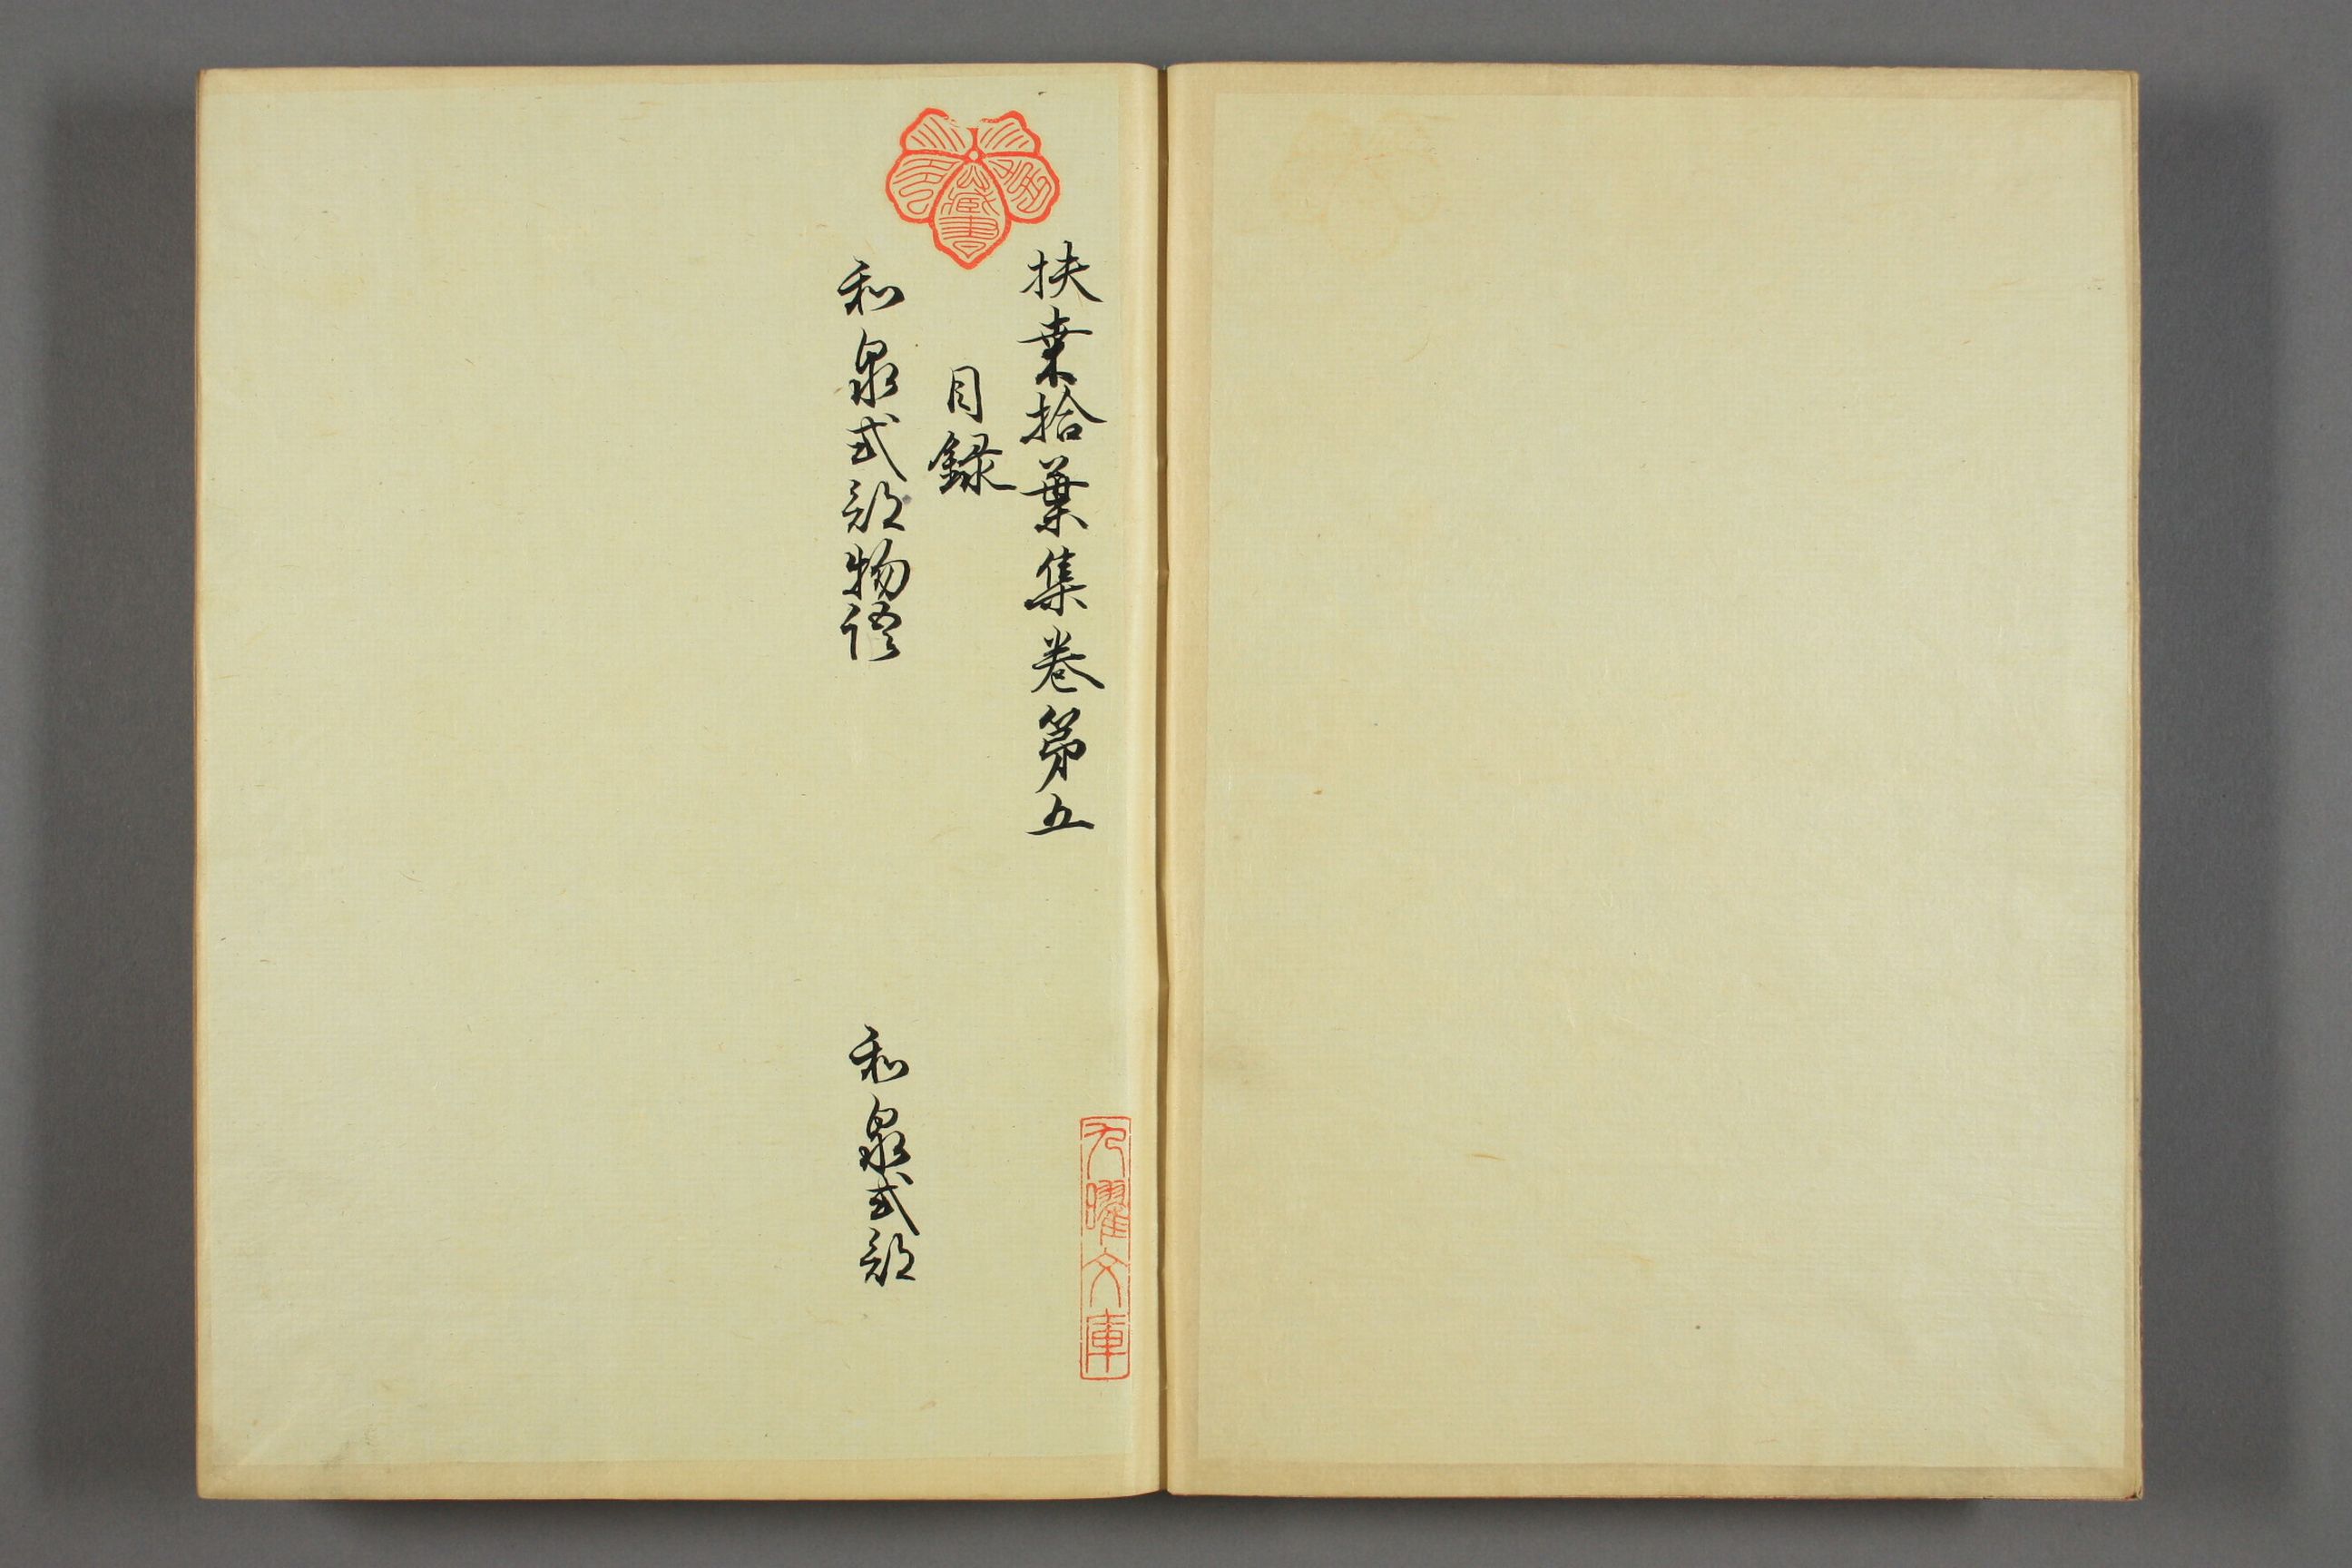 扶桒拾葉集巻第五
目録
和泉式部物語
和泉式部
九曜文庫
蔵書